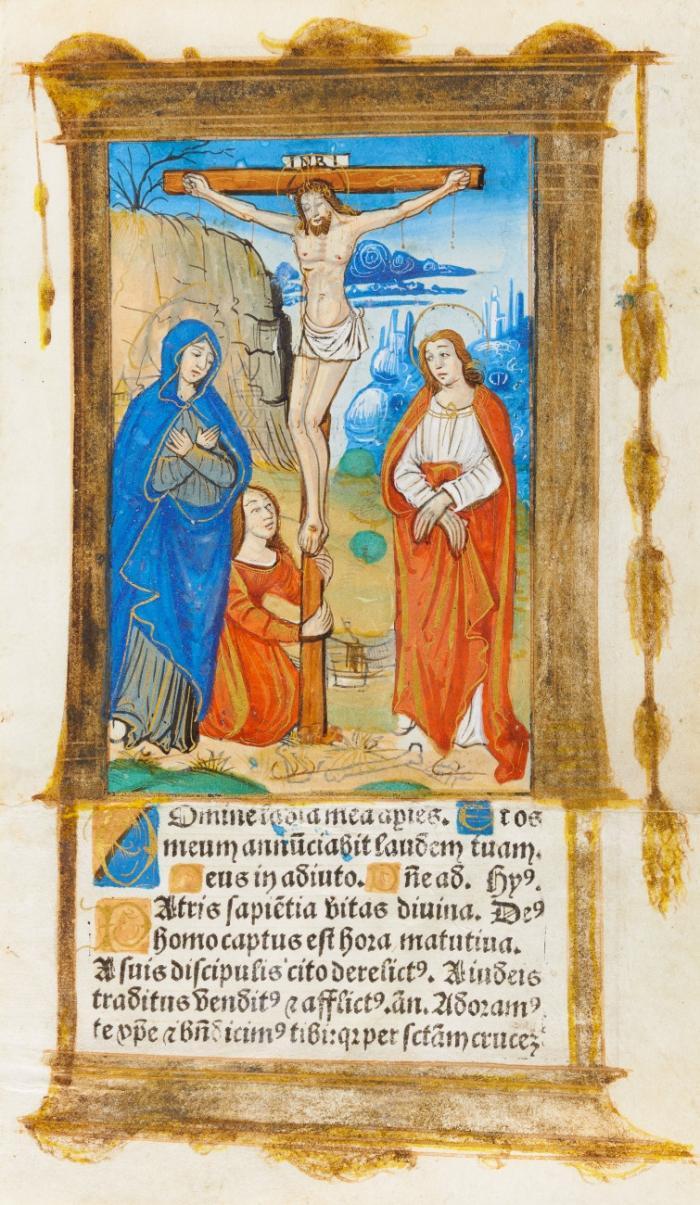 INRI
Omine labia mea apies. Et os
meum annūciabit laudem tuam.
eus in adiuto. Dñe ad. Hyꝰ.
PAtris sapiētia vitas divina. Deꝰ
homo captus est hora matutina.
A suis discipulis cito derelictꝰ. A iudeis
traditus venditꝰ ⁊ afflictꝰ. ān. Adoramꝰ
te xp̄e ⁊ bñdicimꝰ tibi: qꝛ per sctām crucez